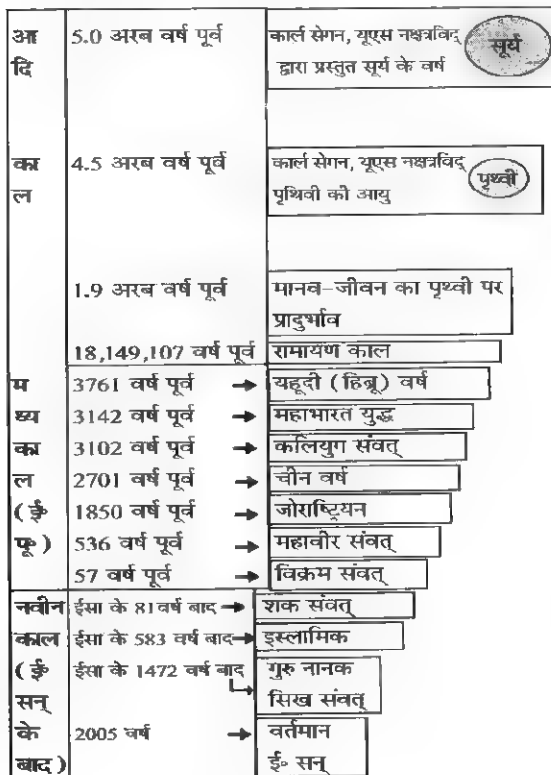 आ 5.0 अरब वर्ष पूर्व कार्ल सेगन, यूएस नक्षत्रविद् सूर्य
दि द्वारा प्रस्तुत सूर्य के वर्ष
का 4.5 अरब वर्ष पूर्व कार्ल सेगन, यूएस नक्षत्रविद् पृथ्वी
ल पृथिवी की आयु
1.9 अरब वर्ष पूर्व मानव-जीवन का पृथ्वी पर
प्रादुर्भाव
18,149,107 वर्ष पूर्व रामायण काल
म 3761 वर्ष पूर्व → यहूदी (हिब्रू) वर्ष
ध्य 3142 वर्ष पूर्व → महाभारत युद्ध
का 3102 वर्ष पूर्व → कलियुग संवत्
ल 2701 वर्ष पूर्व → चीन वर्ष
(ई॰ 1850 वर्ष पूर्व → जोराष्ट्रियन
पू॰) 536 वर्ष पूर्व → महावीर संवत्
57 वर्ष पूर्व → विक्रम संवत्
नवीन ईसा के 81 वर्ष बाद → शक संवत्
काल ईसा के 583 वर्ष बाद → इस्लामिक
(ई॰ ईसा के 1472 वर्ष बाद गुरु नानक
सन् → सिख संवत्
के 2005 वर्ष → वर्तमान
बाद) ई॰ सन्